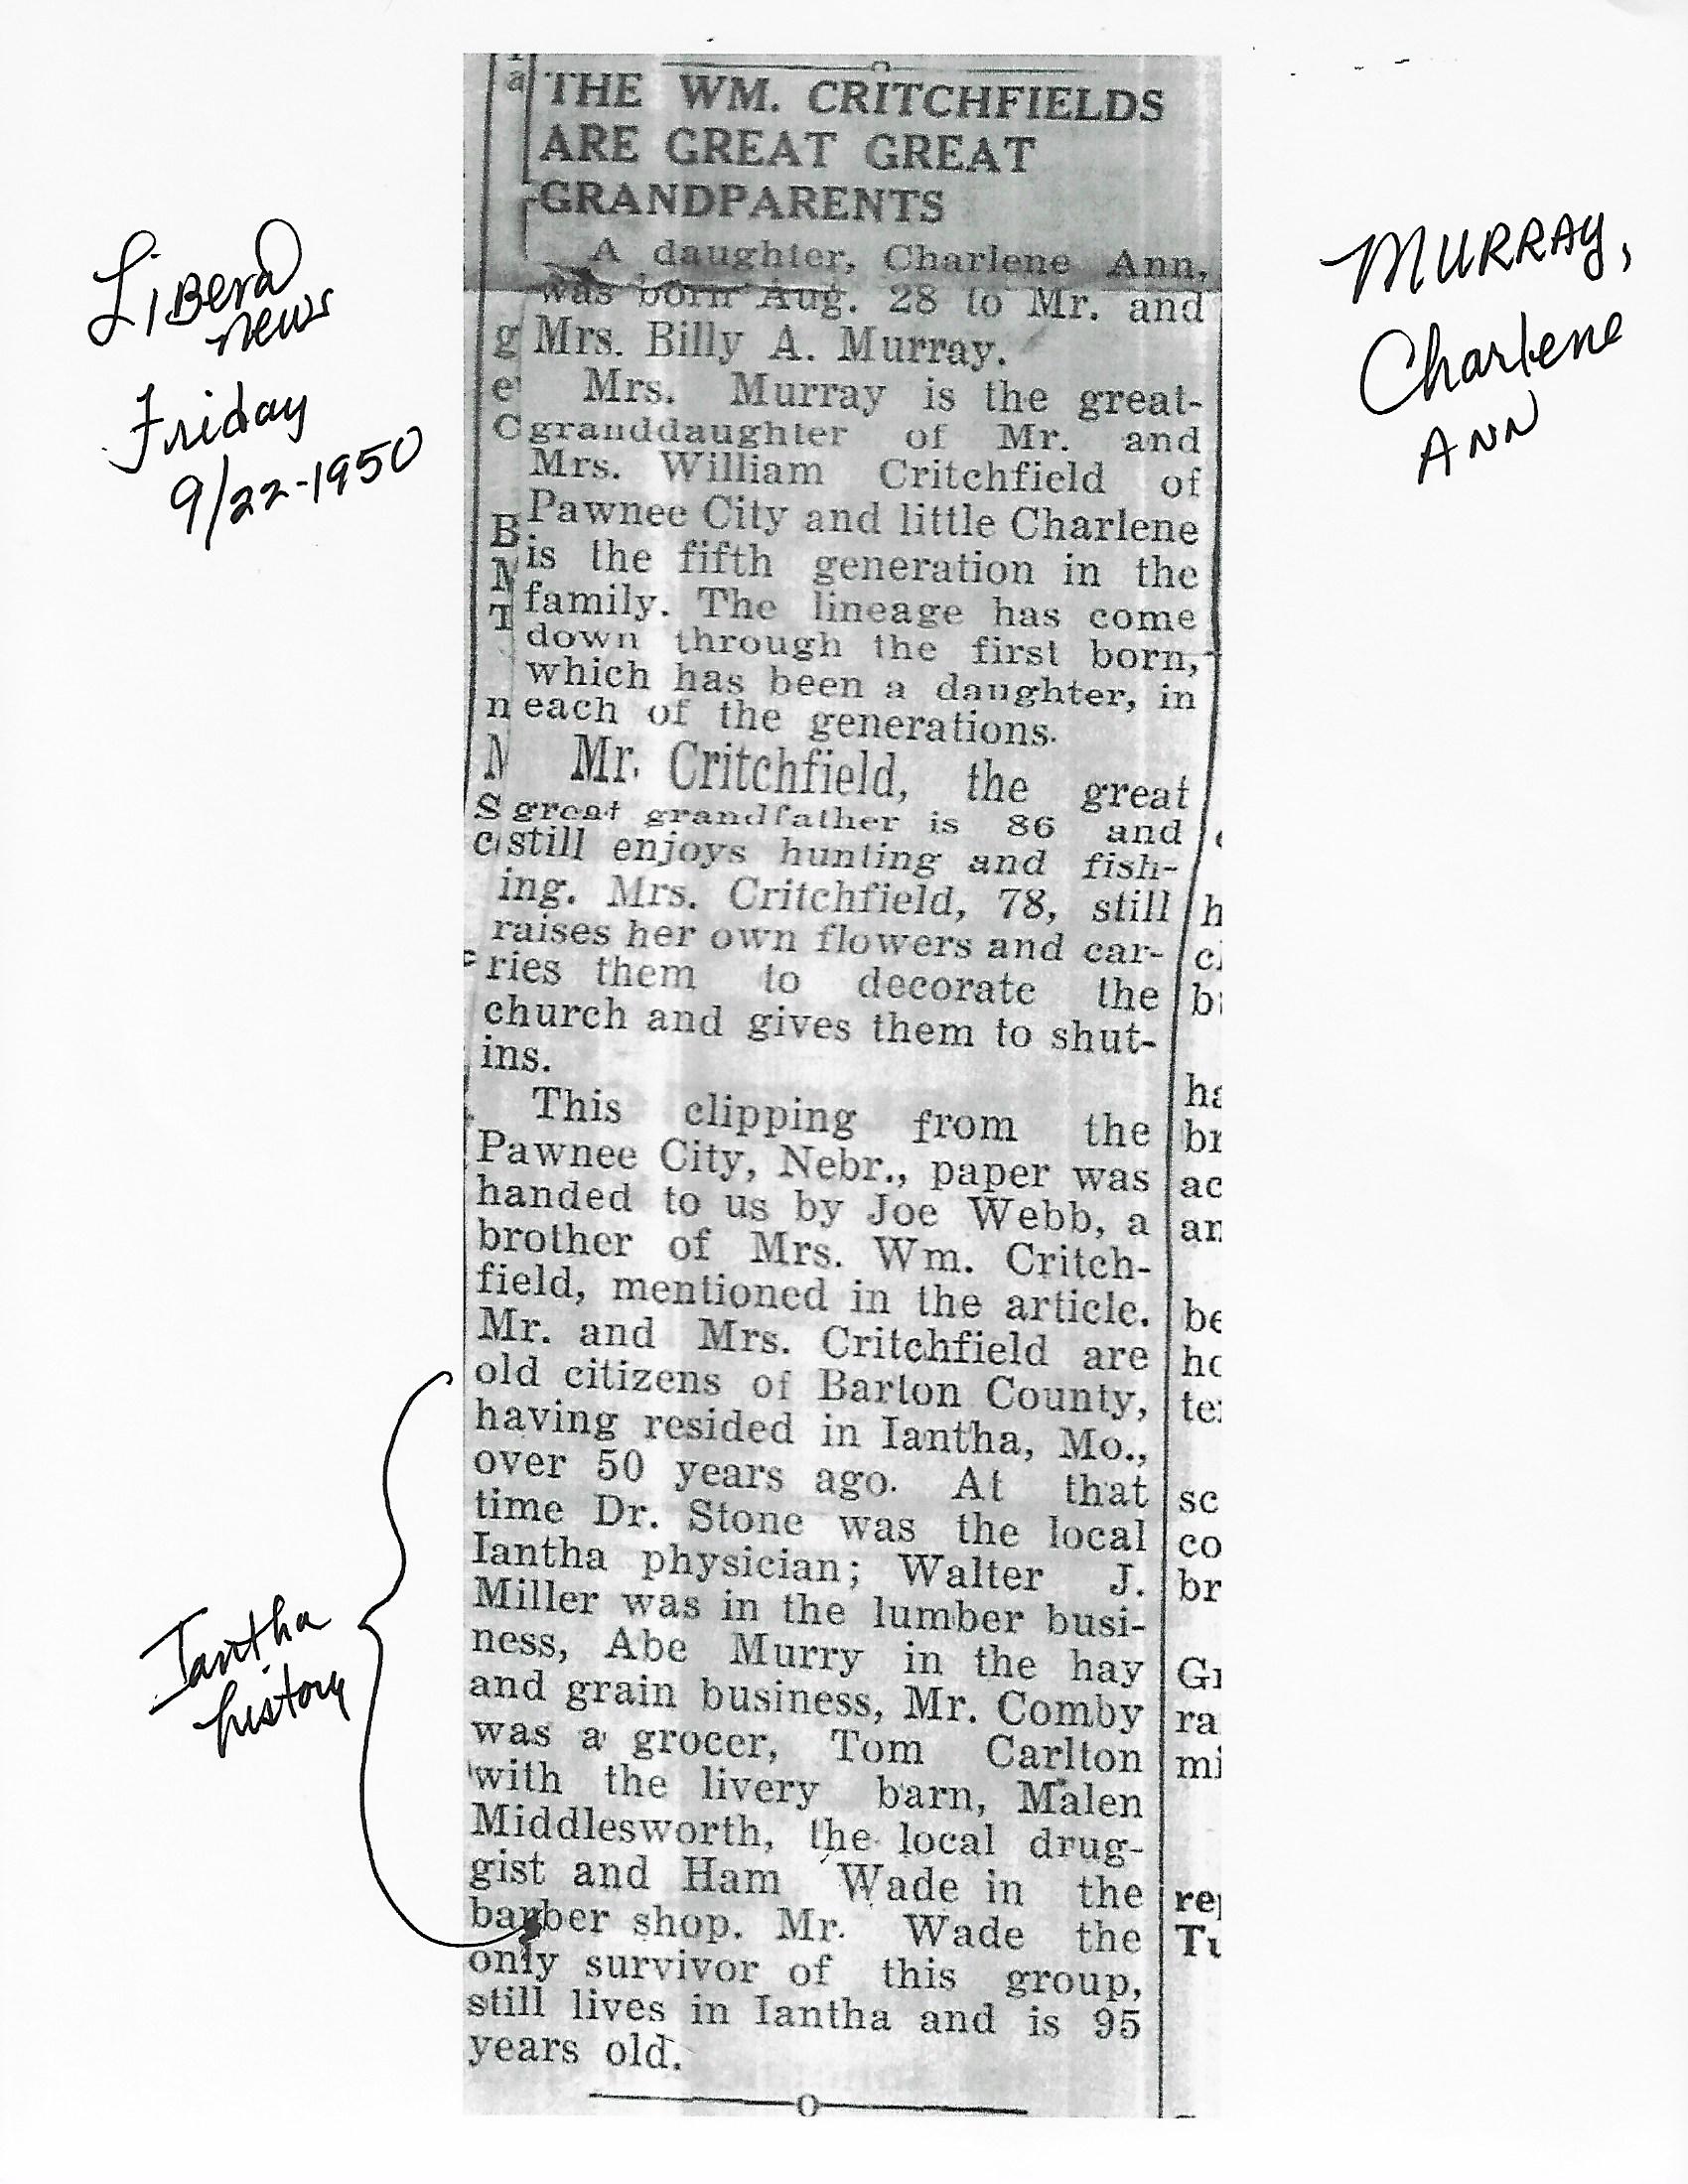 THE WM. CRITCHFIELDS
ARE GREAT GREAT
GRANDPARENTS
A daughter, Charlene Ann,
was born Aug. 28 to Mr. and
Mrs. Billy A. Murray.
Mrs. Murray is the great-
granddaughter of Mr. and
Mrs. William Critchfield of
Pawnee City and little Charlene
is the fifth generation in the
family. The lineage has come
down through the first born,
which has been a daughter, in
each of the generations.
Mr. Critchfield, the great
great grandfather is 86 and
still enjoys hunting and fish-
ing. Mrs. Critchfield, 78, still
raises her own flowers and car-
ries them to decorate the
church and gives them to shut-
ins.
This clipping from the
Pawnee City, Nebr., paper was
handed to us by Joe Webb, a
brother of Mrs. Wm. Critch-
field, mentioned in the article.
Mr. and Mrs. Critchfield are
old citizens of Barton County,
having resided in Iantha, Mo.,
over 50 years ago. At that
time Dr. Stone was the local
Iantha physician; Walter J.
Miller was in the lumber busi-
ness, Abe Murry in the hay
and grain business, Mr. Comby
was a grocer, Tom Carlton
with the livery barn, Malen
Middlesworth, the local drug-
gist and Ham Wade in the
barber shop. Mr. Wade the
only survivor of this group,
still lives in Iantha and is 95
years old.
Liberal
News
Friday
9/22-1950
MURRAY,
Charlene
ANN
Iantha
history